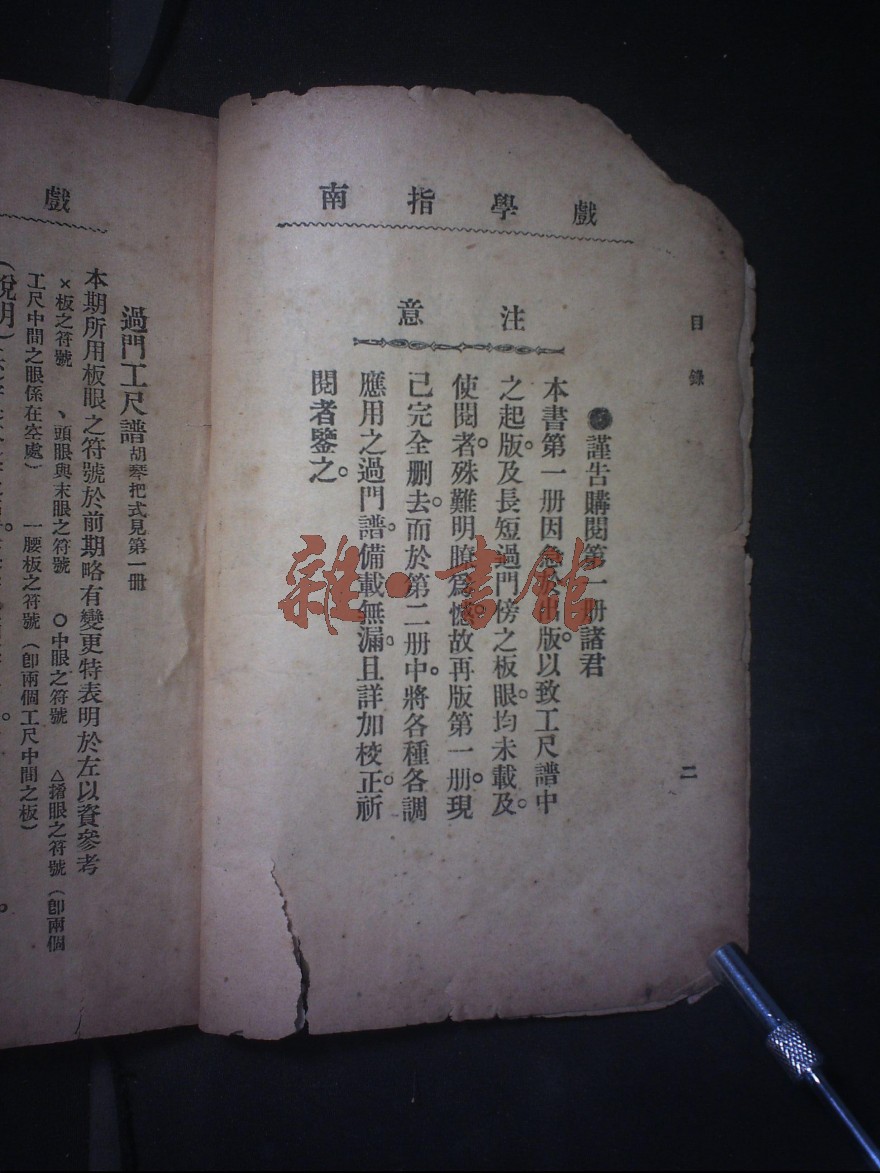 戲學指南
目錄
二
注意
●謹告購閱第一册諸君
本書第一册因急於出版。以致工尺譜中
之起版。及長短過門傍之板眼。均未載及。
使閱者。殊難明瞭爲憾。故再版第一册。現
已完全删去。而於第二册中。將各種各調
應用之過門譜。備載無漏。且詳加校正。祈
閱者鑒之。
戲
過門工尺譜 胡琴把式見第一册
本期所用板眼之符號於前期略有變更特表明於左以資參考
×板之符號 、頭眼與末眼之符號 ○中眼之符號 △撍眼之符號(卽兩個
工尺中間之眼係在空處) 一腰板之符號(卽兩個工尺中間之板)
(說明)
雜·書館